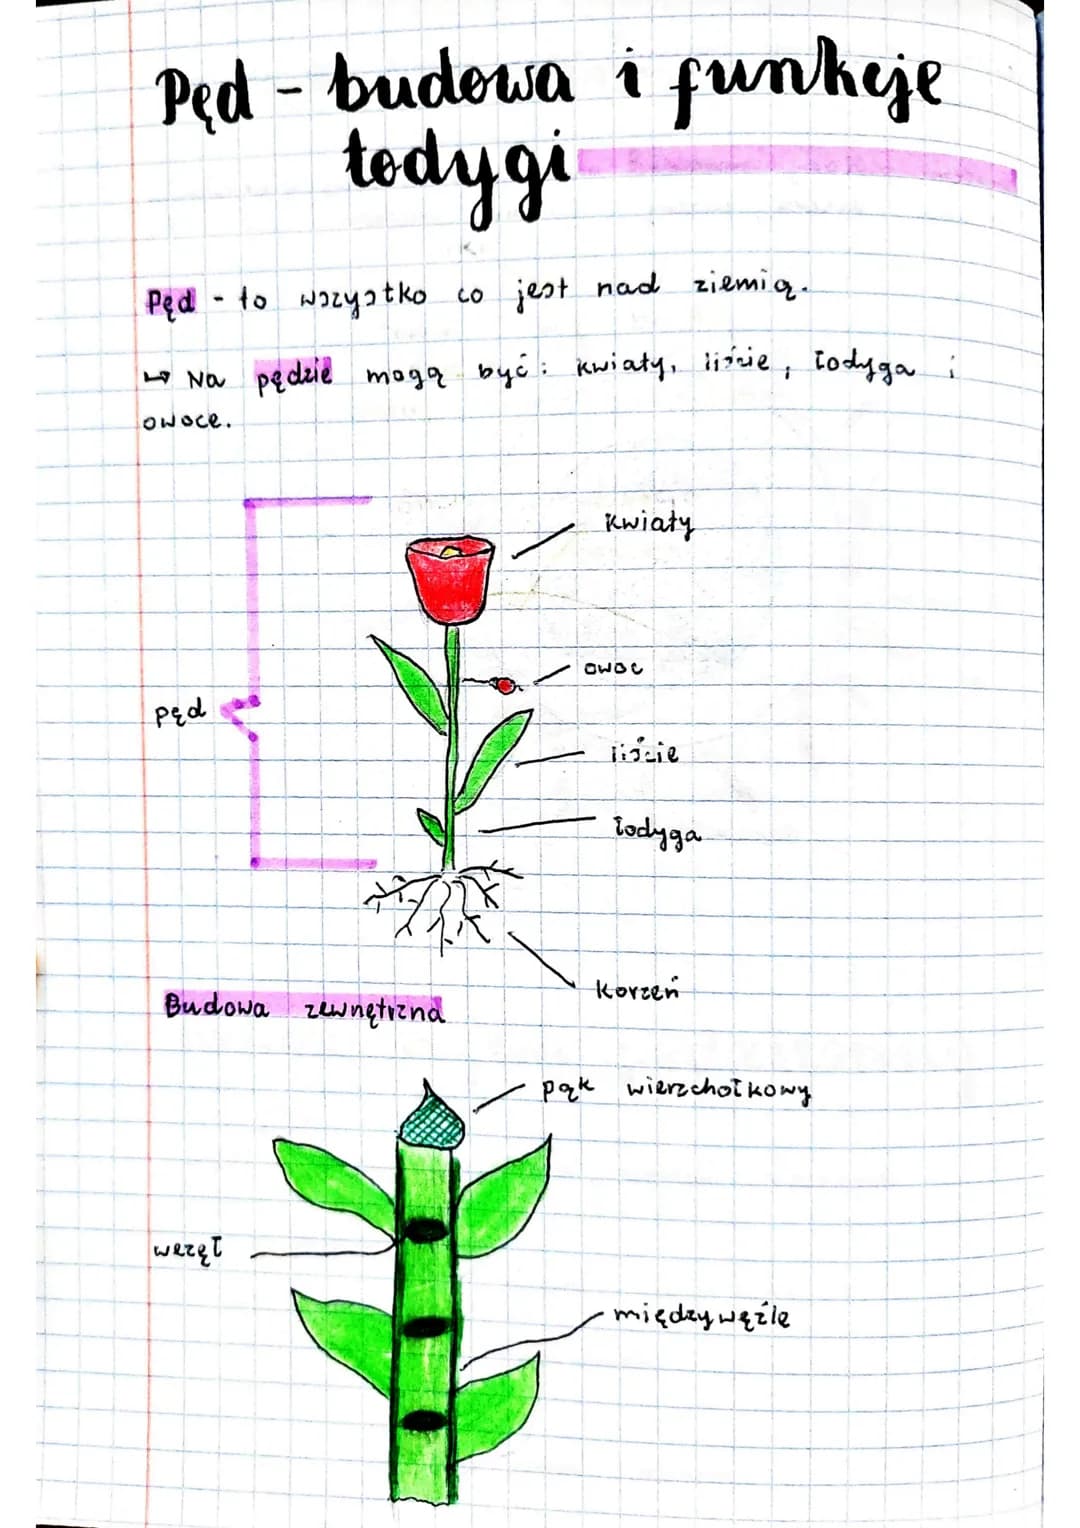 Pęd - budowa i funkcje
łodygi
Pęd - to wszystko co jest nad ziemią.
↳ Na pędzie mogą być: kwiaty, liście, łodyga i
owoce.
kwiaty
owoc
pęd
liście
łodyga
korzeń
Budowa zewnętrzna
pąk wierzchołkowy
węzęł
międzywęźle